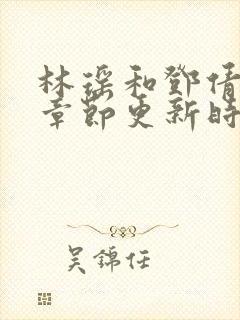 林瑶和邓倩
章节更新时
吴锦任